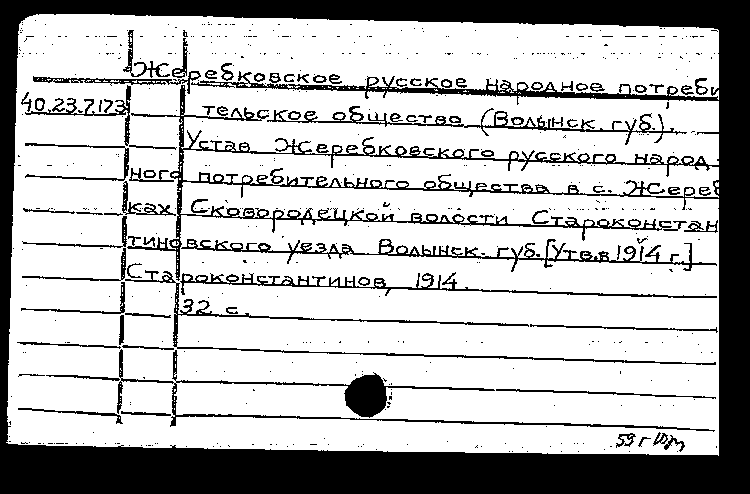 Жеребковское русское народное потреби
40.23.7.173 тельское общество (Волынск. губ.).
Устав Жеребковского русского народ-
ного потребительного общества в с. Жереб
ках Сковородецкой волости Староконстан
тиновского уезда Волынск. губ. [Утв. в 1914 г.].
Староконстантинов, 1914.
32 с.
59 г